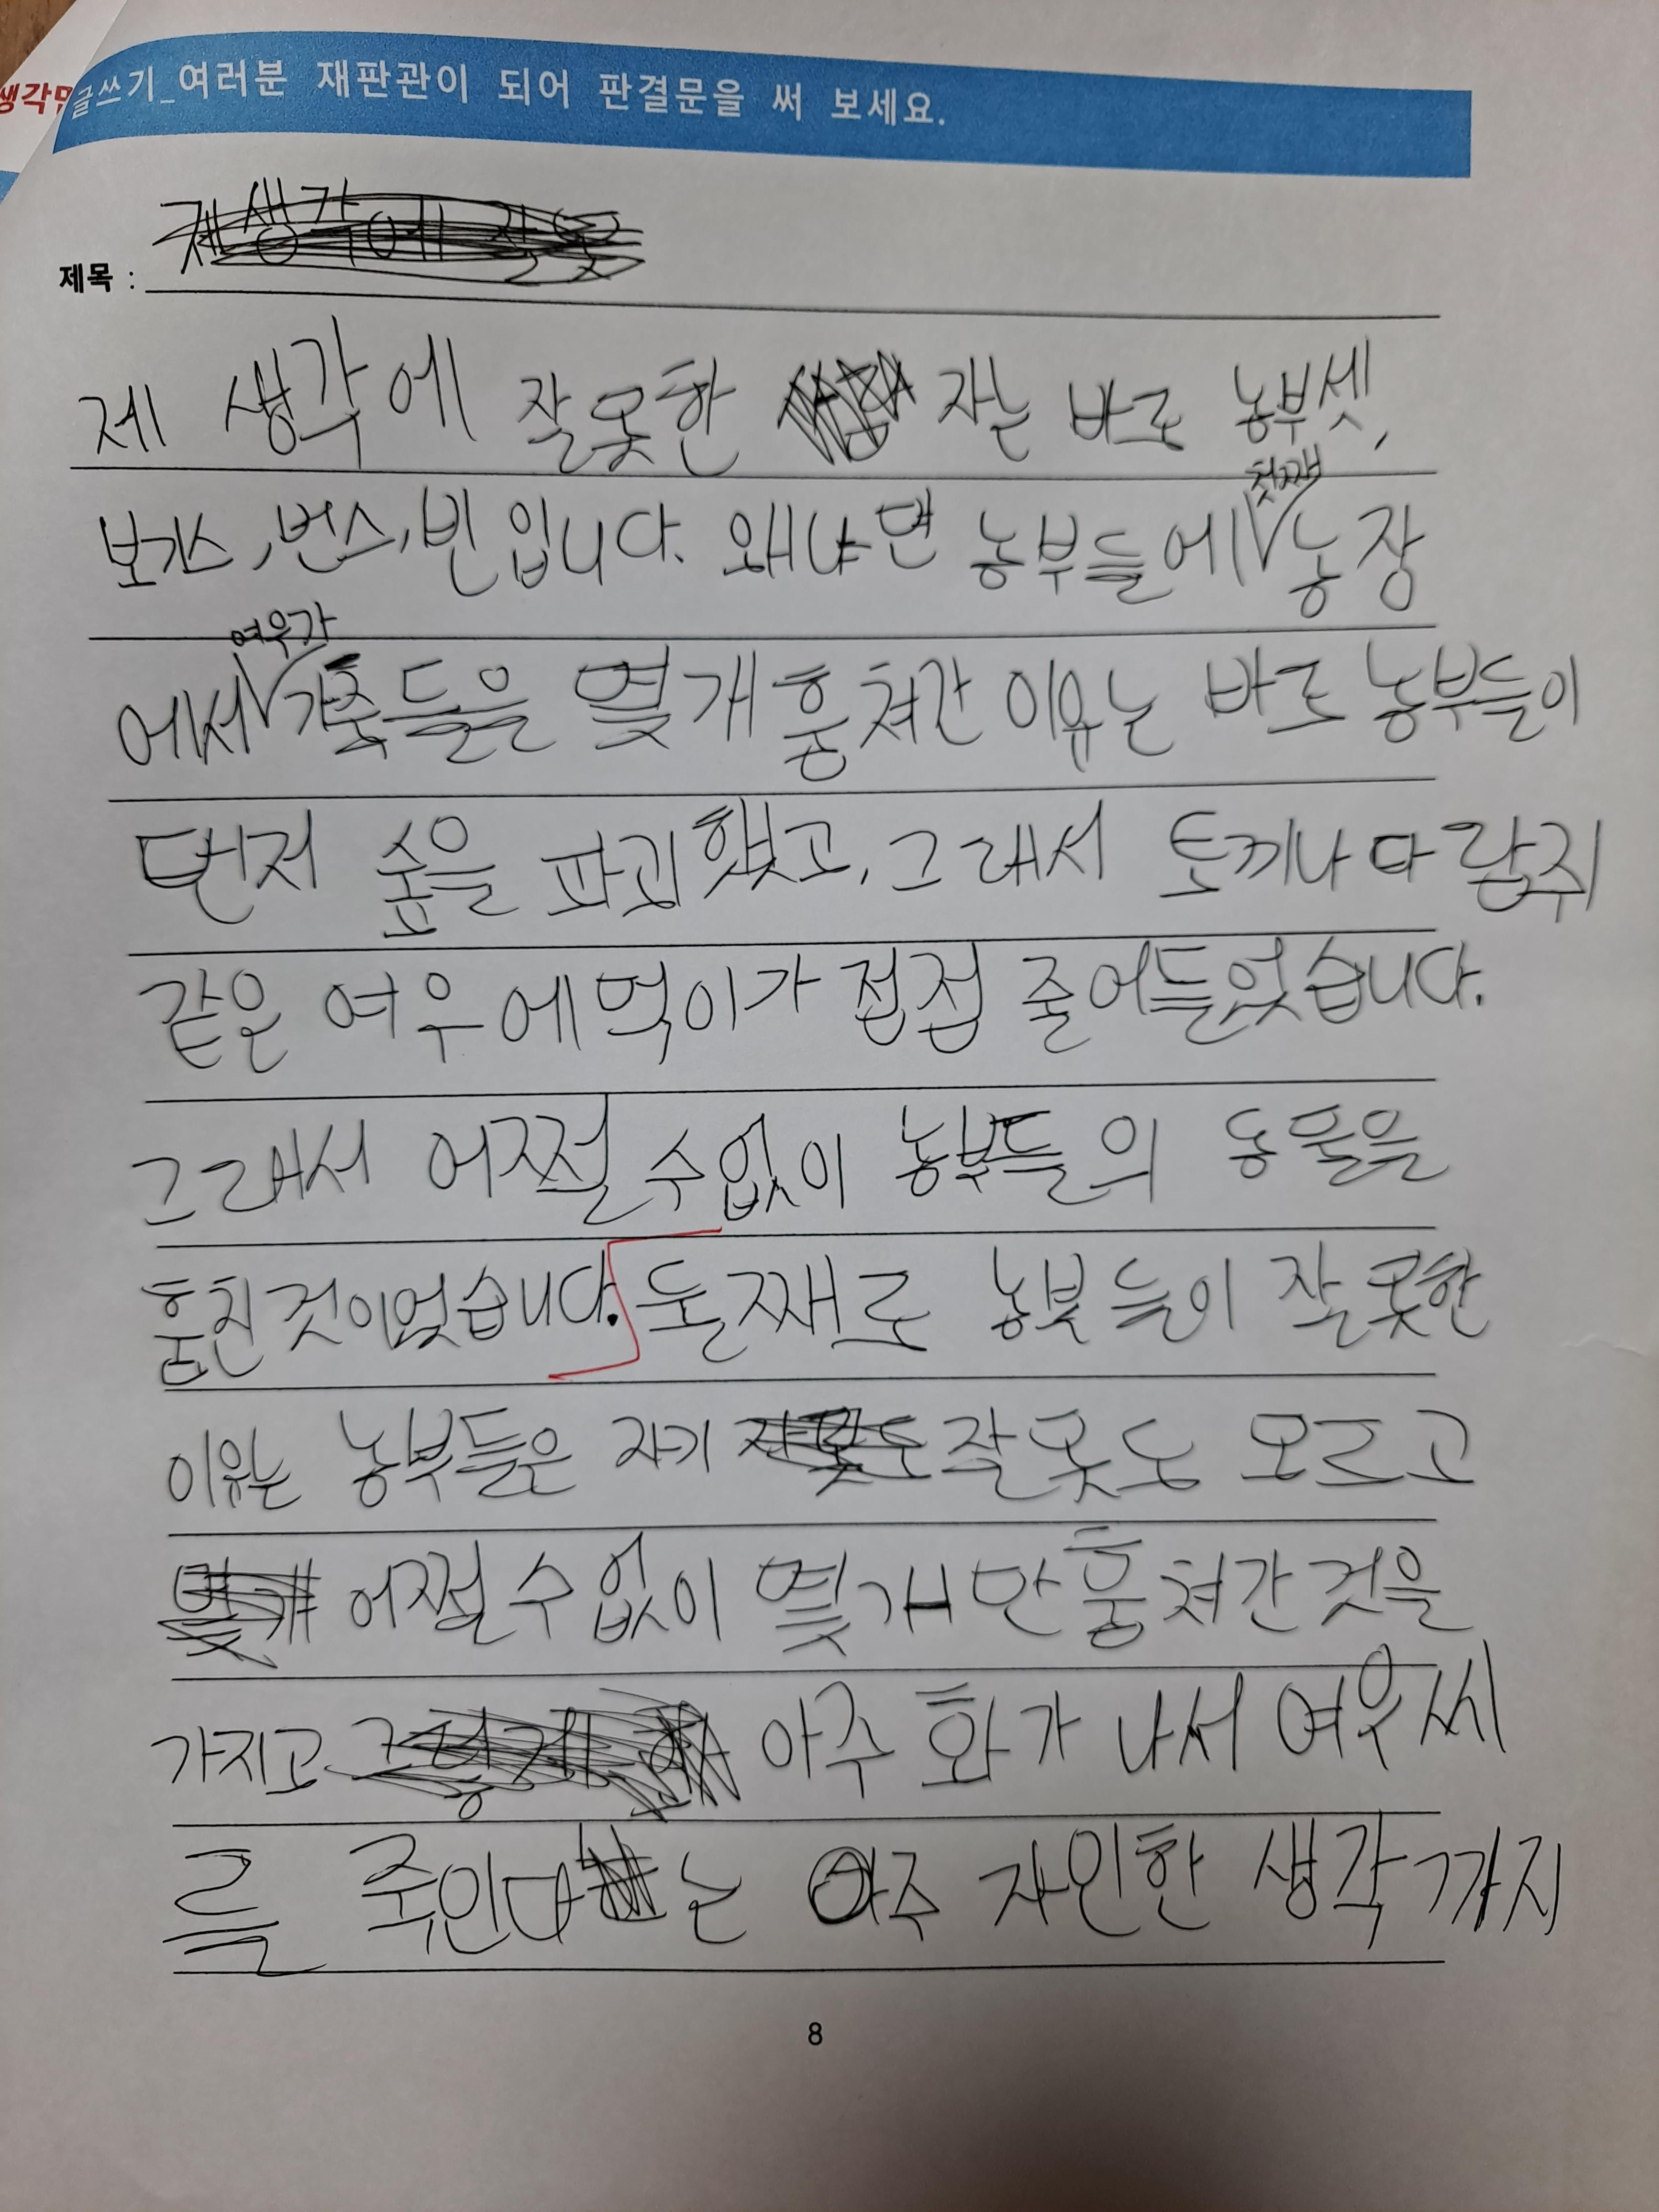 생각
글쓰기_여러분 재판관이 되어 판결문을 써 보세요.
제생각에 잘못
제목 :
제 생각에 잘못한 자는 바로 농부셋,
첫째
보기스, 번스, 빈입니다. 왜냐면 농부들에 농장
여우가
에서 가축들을 몇개 훔쳐간 이유는 바로 농부들이
먼저 숲을 파괴했고, 그래서 토끼나 다람쥐
같은 여우에 먹이가 점점 줄어들었습니다.
그래서 어쩔 수 없이 농부들의 동물을
훔친 것이었습니다. 둘째로 농부들이 잘못한
이유는 농부들은 자기 잘못도 모르고
몇개 어쩔 수 없이 몇개만 훔쳐간 것을
가지고 그렇게 아주 화가 나서 여우씨
를 죽인다는 아주 자인한 생각까지
8